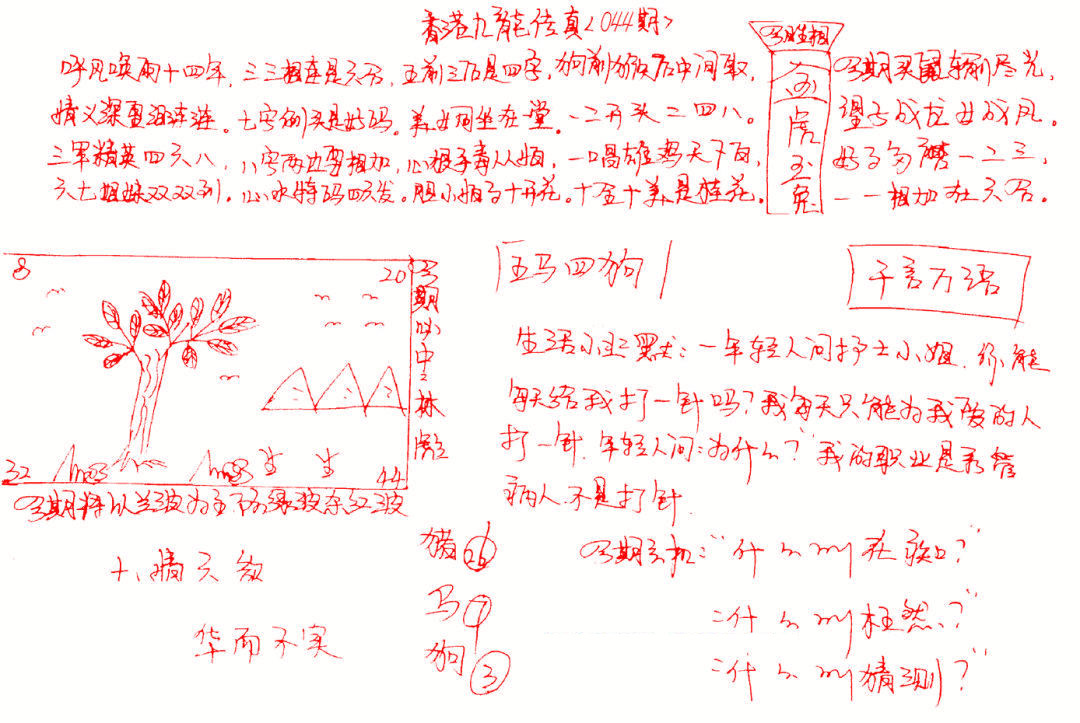 香港九龍传真<044期>
呼风唤雨十四年,三三相连是六合,五前三后是四字,狗前狗后中间取,
情义深重泪涟涟。七字倒头是好码。美女同坐在堂。一二开头二四八。
三军精英四六八,八字两边要相加,心狠手毒从,一唱雄鸡天下白,
六七姐妹双双到。心水特码四六发。胆小十开花。十全十美是桂花。
今期生相
虎
玉
兔
今期买鼠输尽光,
望子成龙女成凤。
好事多磨一二三,
一一相加在六合。
8
20
32
44
今期必中
林
今期特以兰波为主下防绿波杂红波
五马四狗
千言万语
生活小幽默:一年轻人问护士小姐.你能
每天给我打一针吗?我每天只能为我爱的人
打一针.年轻人问:为什么?"我的职业是看管
病人不是打针.
十、晴天
华而不实
猪 26
马 7
狗 3
今期玄机:"什么叫在?"
"什么叫枉然?"
"什么叫猜测?"